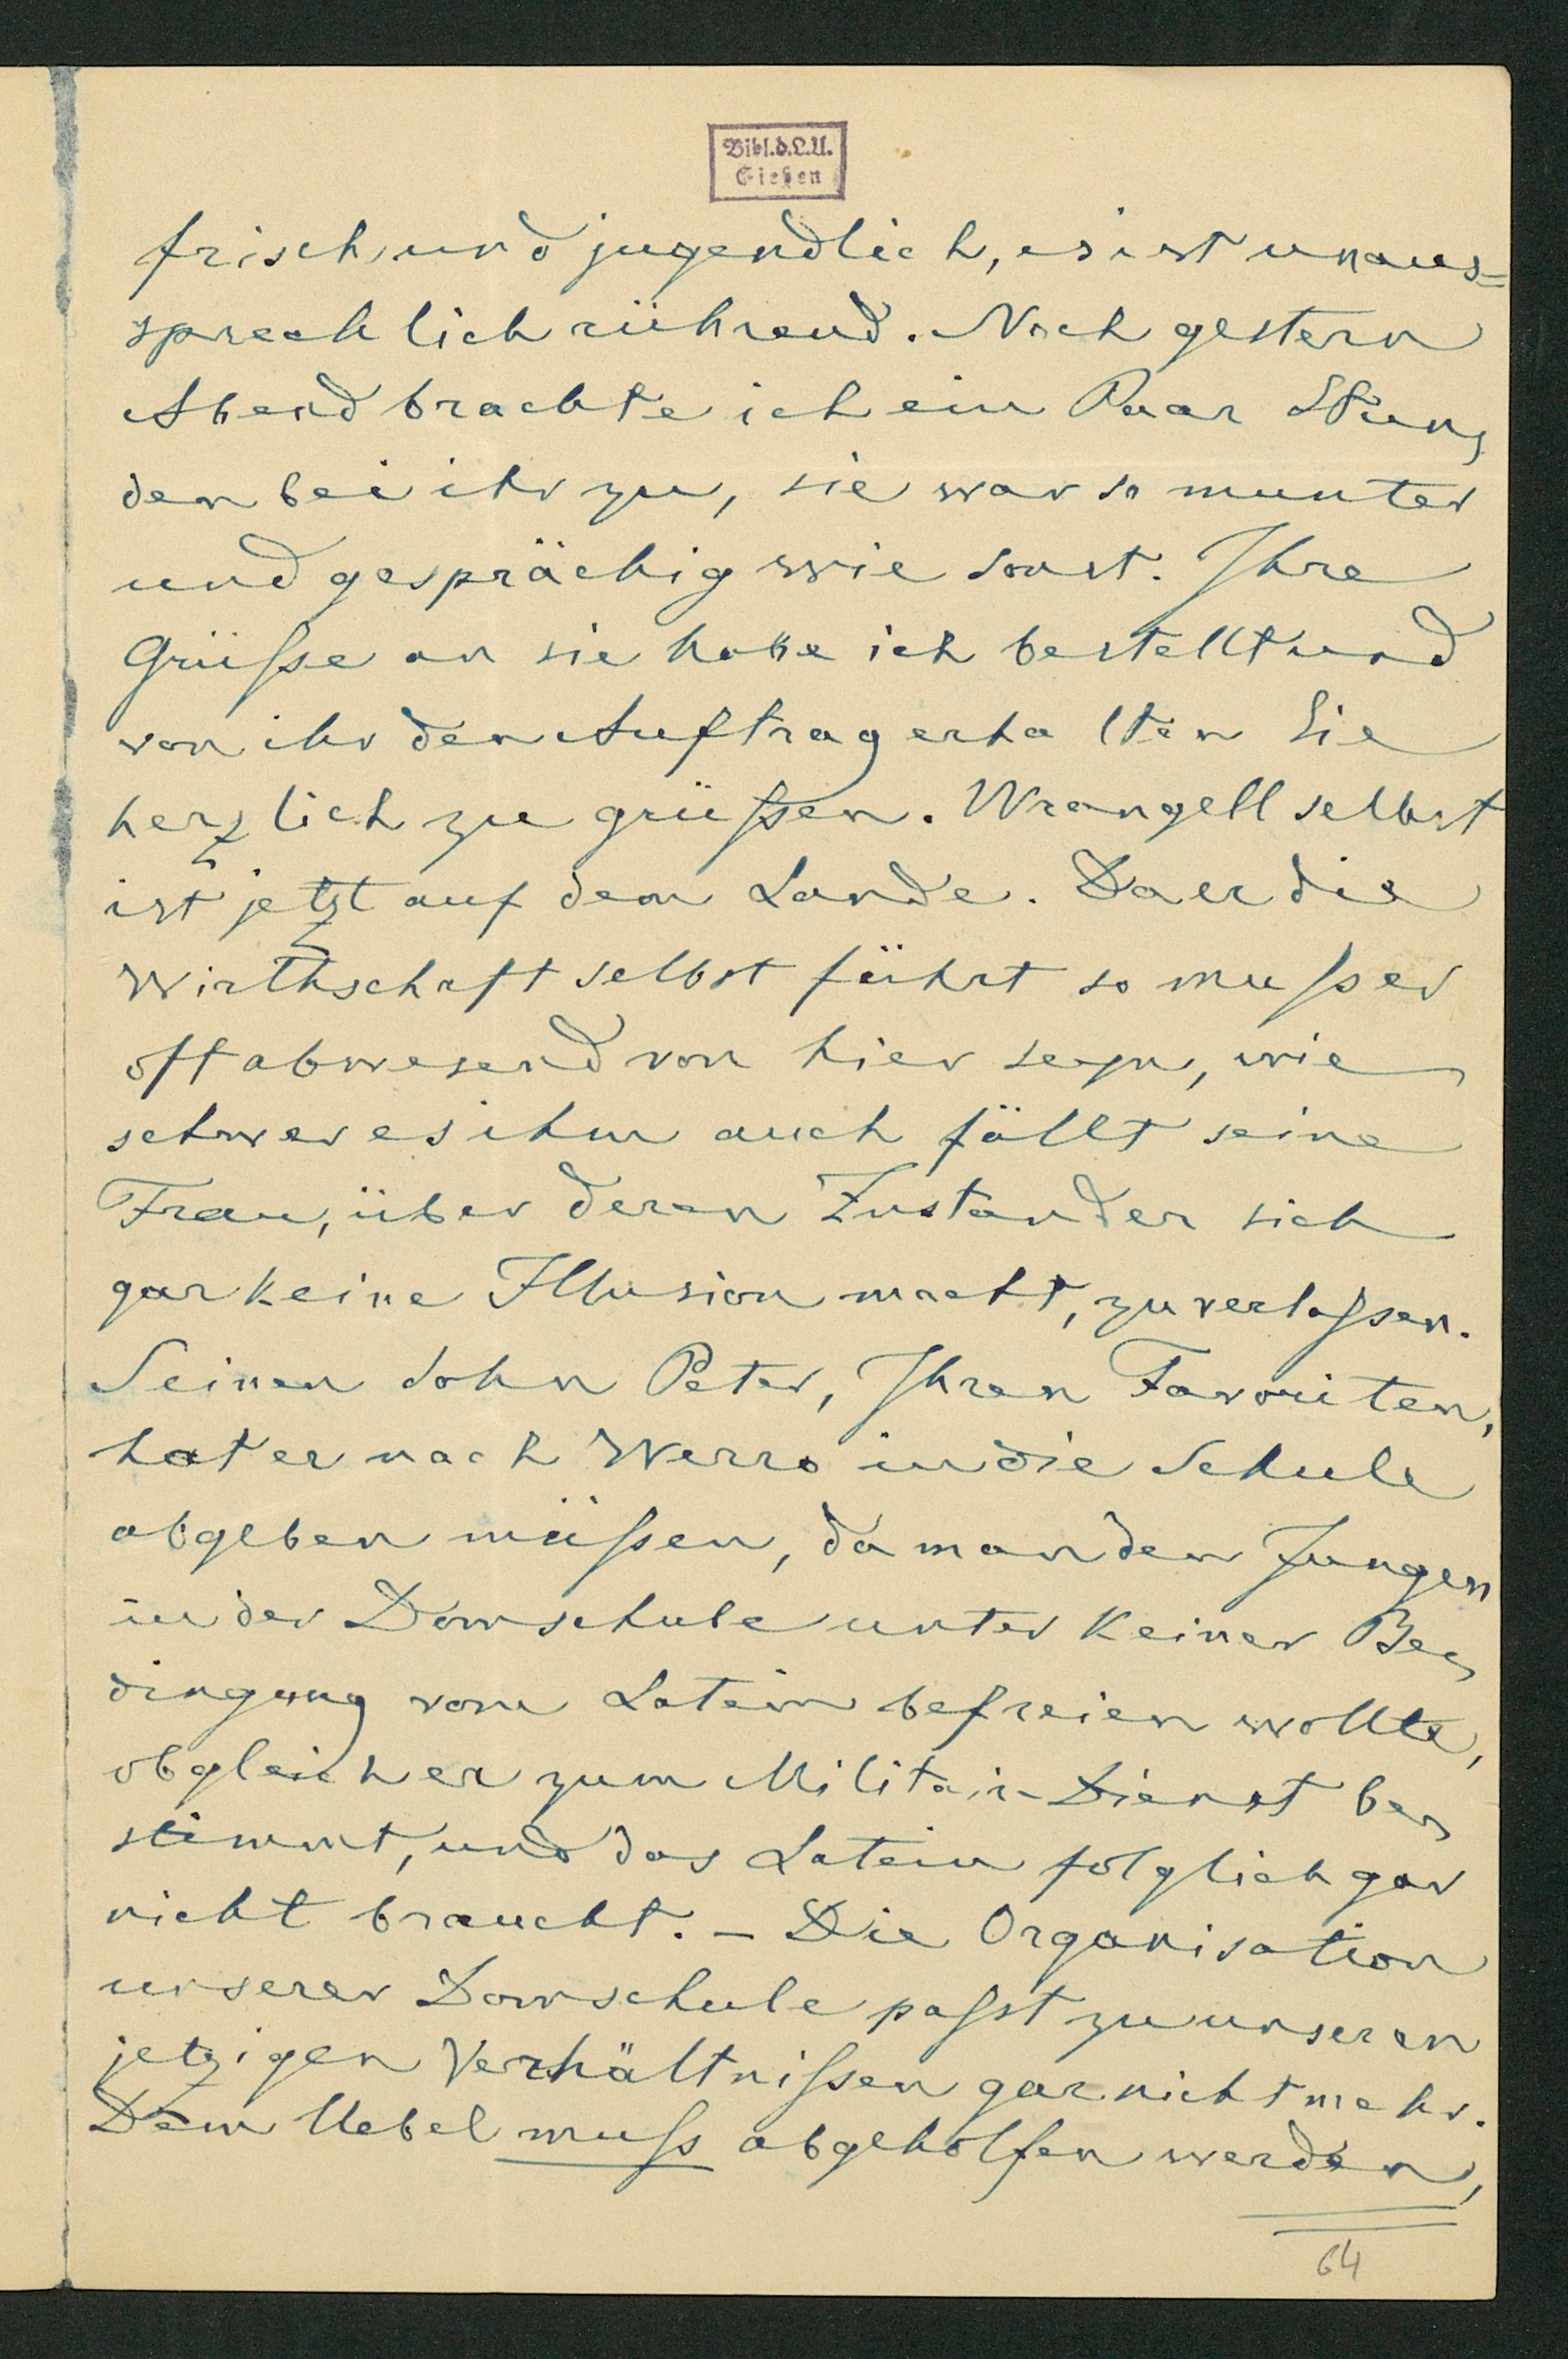 Bibl.d.L.U.
Gießen
frisch und jugendlich, es ist unaus=
sprechlich rührend. Noch gestern
Abend brachte ich ein Paar Stun-
den bei ihr zu, sie war so munter
und gesprächig wie sonst. Ihre
Grüße an sie habe ich bestellt und
von ihr den Auftrag erhalten Sie
herzlich zu grüßen. Wrangell selbst
ist jetzt auf dem Lande. Da er die
Wirthschaft selbst führt so muß er
oft abwesend von hier seyn, wie
schwer es ihm auch fällt seine
Frau, über deren Zustand er sich
gar keine Illusion macht, zu verlaßen.
Seinen Sohn Peter, Ihren Favoriten,
hat er nach Werro in die Schule
abgeben müßen, da man den Jungen
in der Domschule unter keiner Be-
dingung vom Latein befreien wollte,
obgleich er zum Militair-Dienst be-
stimmt, und das Latein folglich gar
nicht braucht. - Die Organisation
unserer Domschule paßt zu unseren
jetzigen Verhältnißen gar nicht mehr.
Dem Uebel muß abgeholfen werden,
64